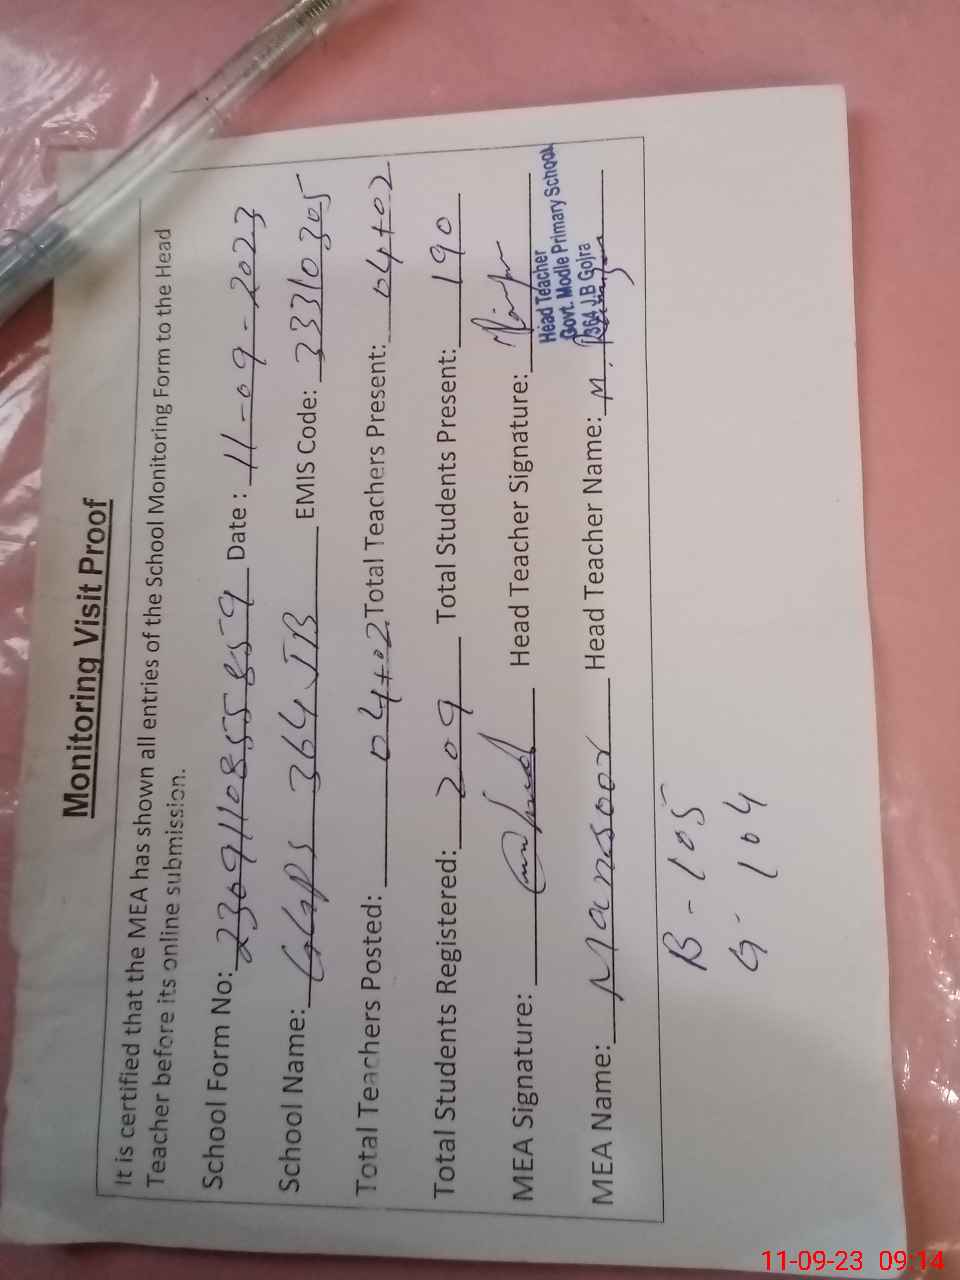 Monitoring Visit Proof
It is certified that the MEA has shown all entries of the School Monitoring Form to the Head
Teacher before its online submission.
School Form No: 2309110855859 Date : 11-09-2023
School Name: GMPS 364 JB EMIS Code: 33310305
Total Teachers Posted: 04+02 Total Teachers Present: 04+02
Total Students Registered: 209 Total Students Present: 190
MEA Signature: Head Teacher Signature:
Head Teacher
Govt. Modle Primary School
364 J.B Gojra
MEA Name: Mansoor Head Teacher Name: M.
B - 105
G - 104
11-09-23 09:14